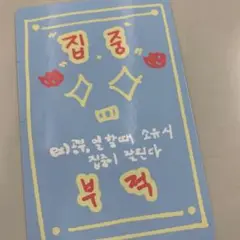 "집중"
ex) 공부, 일 할 때 소유시
집중이 잘된다
부적